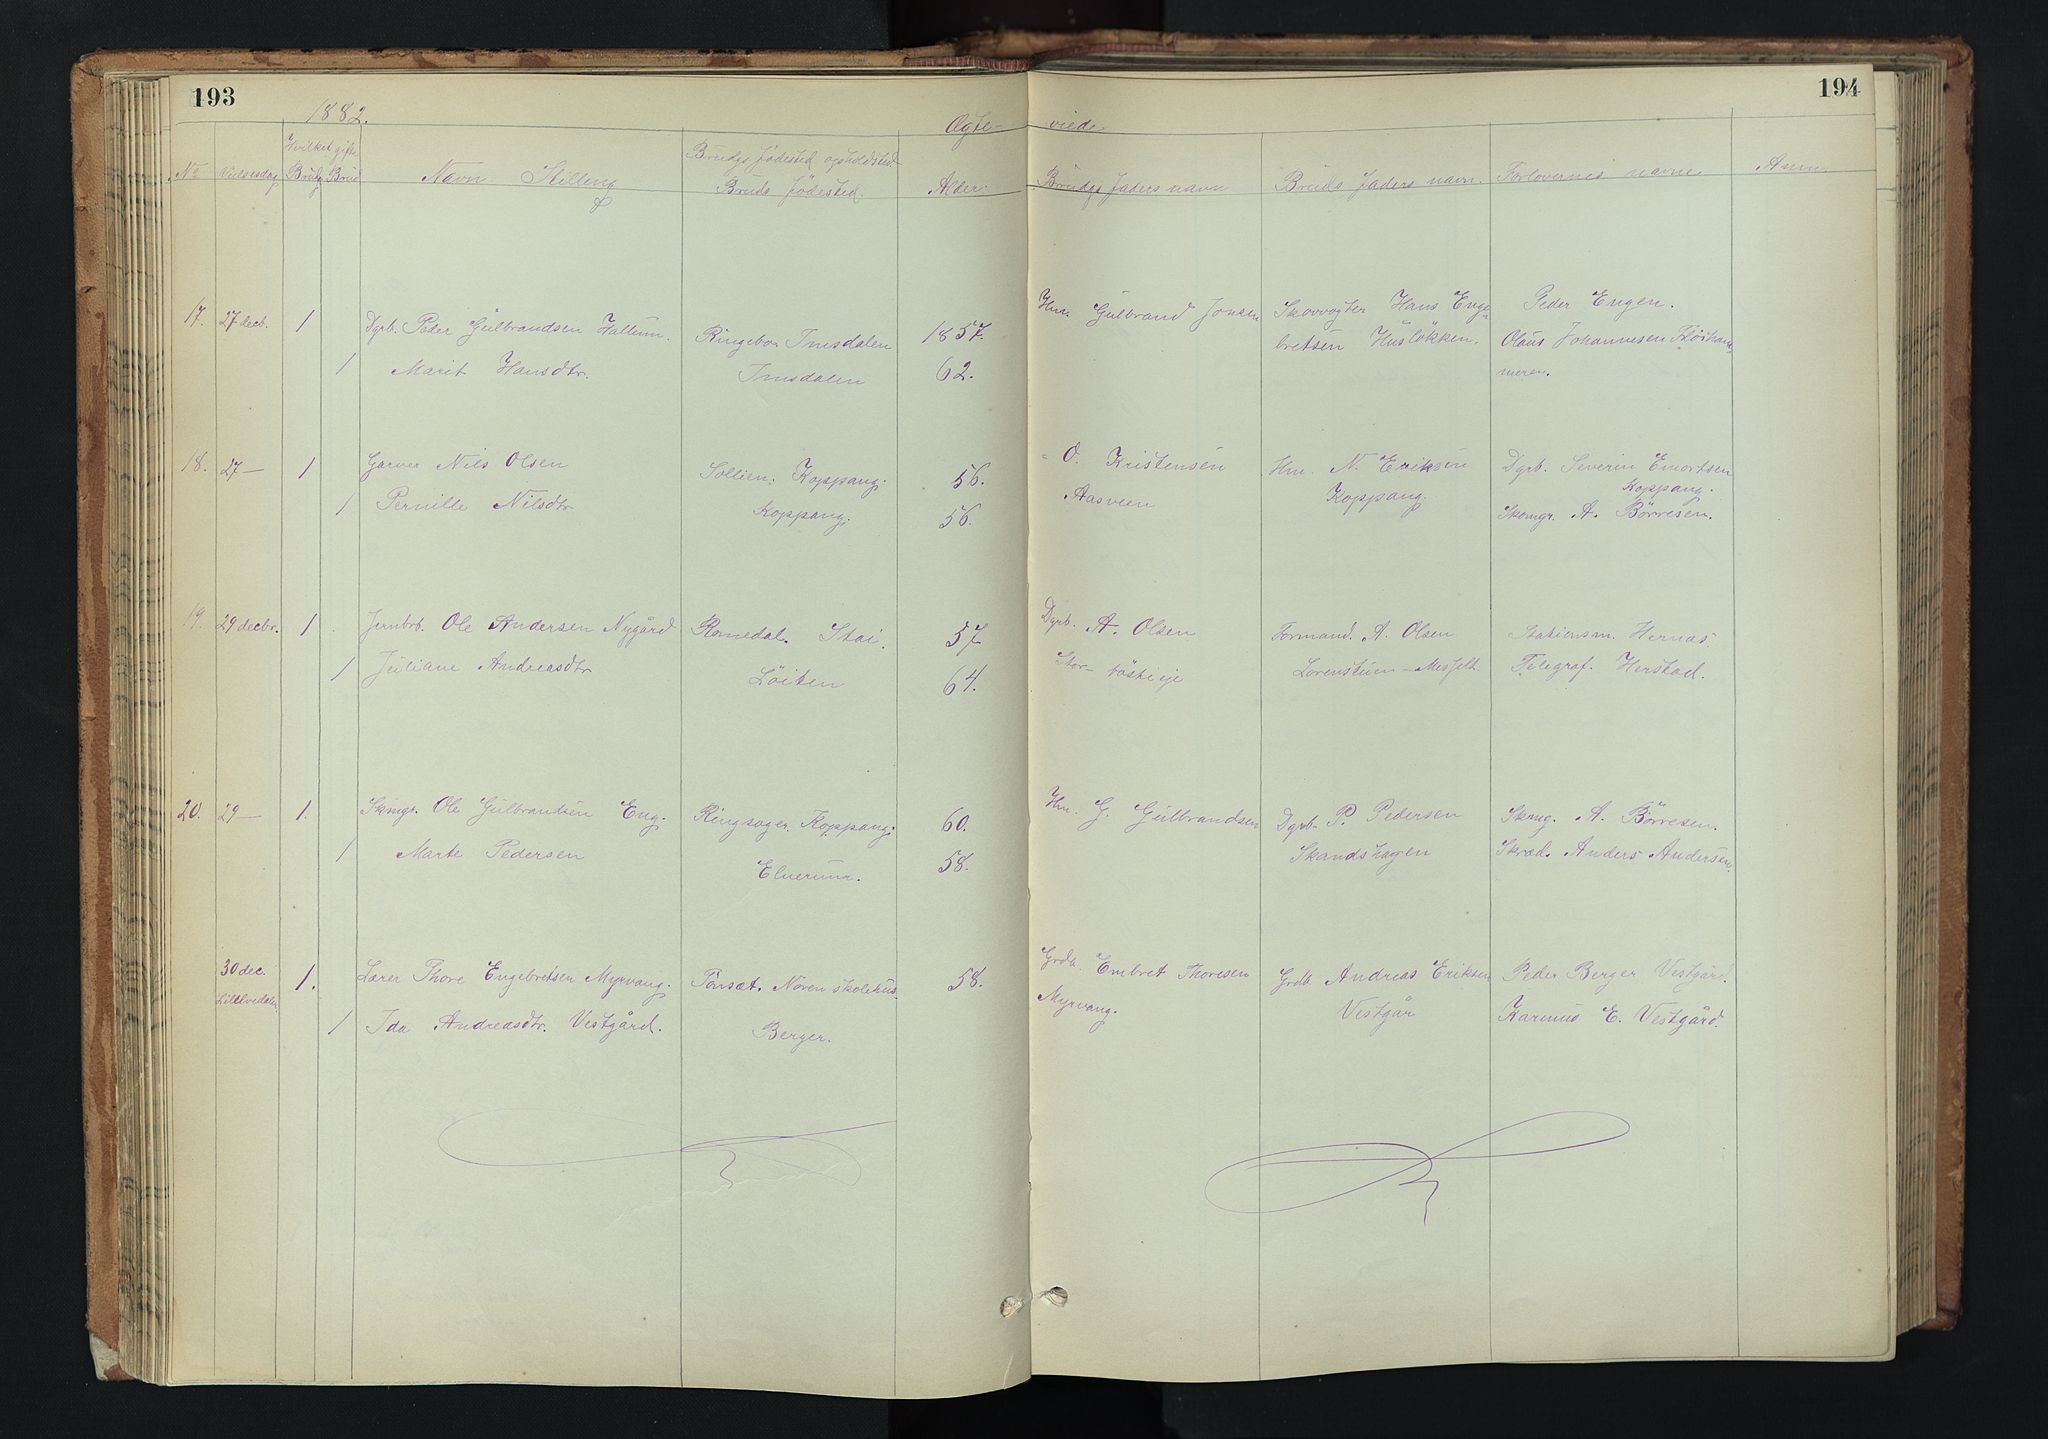 193
194
1882.
Ægte- viede
No Vielsesdag Hvilket gifte Brudg Brud Navn Stilling Brudgs fødested opholdsted Alder. Brudgs faders navn Bruds faders navn. Forlovernes navne Anm.
Bruds fødested
17. 27 decb. 1 Dgrb. Peder Gulbrandsen Hallum. Ringebo. Imsdalen 1857. Hm. Gulbrand Jonsen Skovvogter Hans Enge- Peder Engen.
bretsen Husløkken. Olaus Johannesen Fløitham-
1 Marit Hansdtr. Imsdalen 62. meren.
18. 27 — 1 Garver Nils Olsen Sollien. Koppang. 56. " O. Kristensen Hm. N. Eriksen Dgrb. Severin Emortsen
Koppang.
1 Pernille Nilsdtr Koppang. 56. Aasveen Koppang. Skomgr. A. Børresen.
19. 29 decbr. 1 Jernbrb. Ole Andersen Nygård Romedal. Stai. 57 Dgrb. A. Olsen Formand. A. Olsen Stationsm. Hernæs.
1 Juliane Andreasdtr Løiten 64. Stor- Lorenstuen – Messelt Telegraf. Herstad.
20. 29 — 1. Skmgr. Ole Gulbrandsen Eng. Ringsager. Koppang. 60. Hm. G. Gulbrandsen Dgrb. P. Pedersen Skmg. A. Børresen.
1 Marte Pedersen Elverum. 58. Skandshagen Skræd. Anders Andersen.
30 dec. 1. Lærer Thore Engebretsen Myrvang. Tønsæt. Nøren skolehus. 58. Grdb. Embret Thoresen Grdb. Andreas Eriksen Peder Berger Vestgård.
Lilelvedalen
1 Ida Andreasdtr. Vestgård. Berger. Myrvang. Vestgår Karinus E. Vestgård.